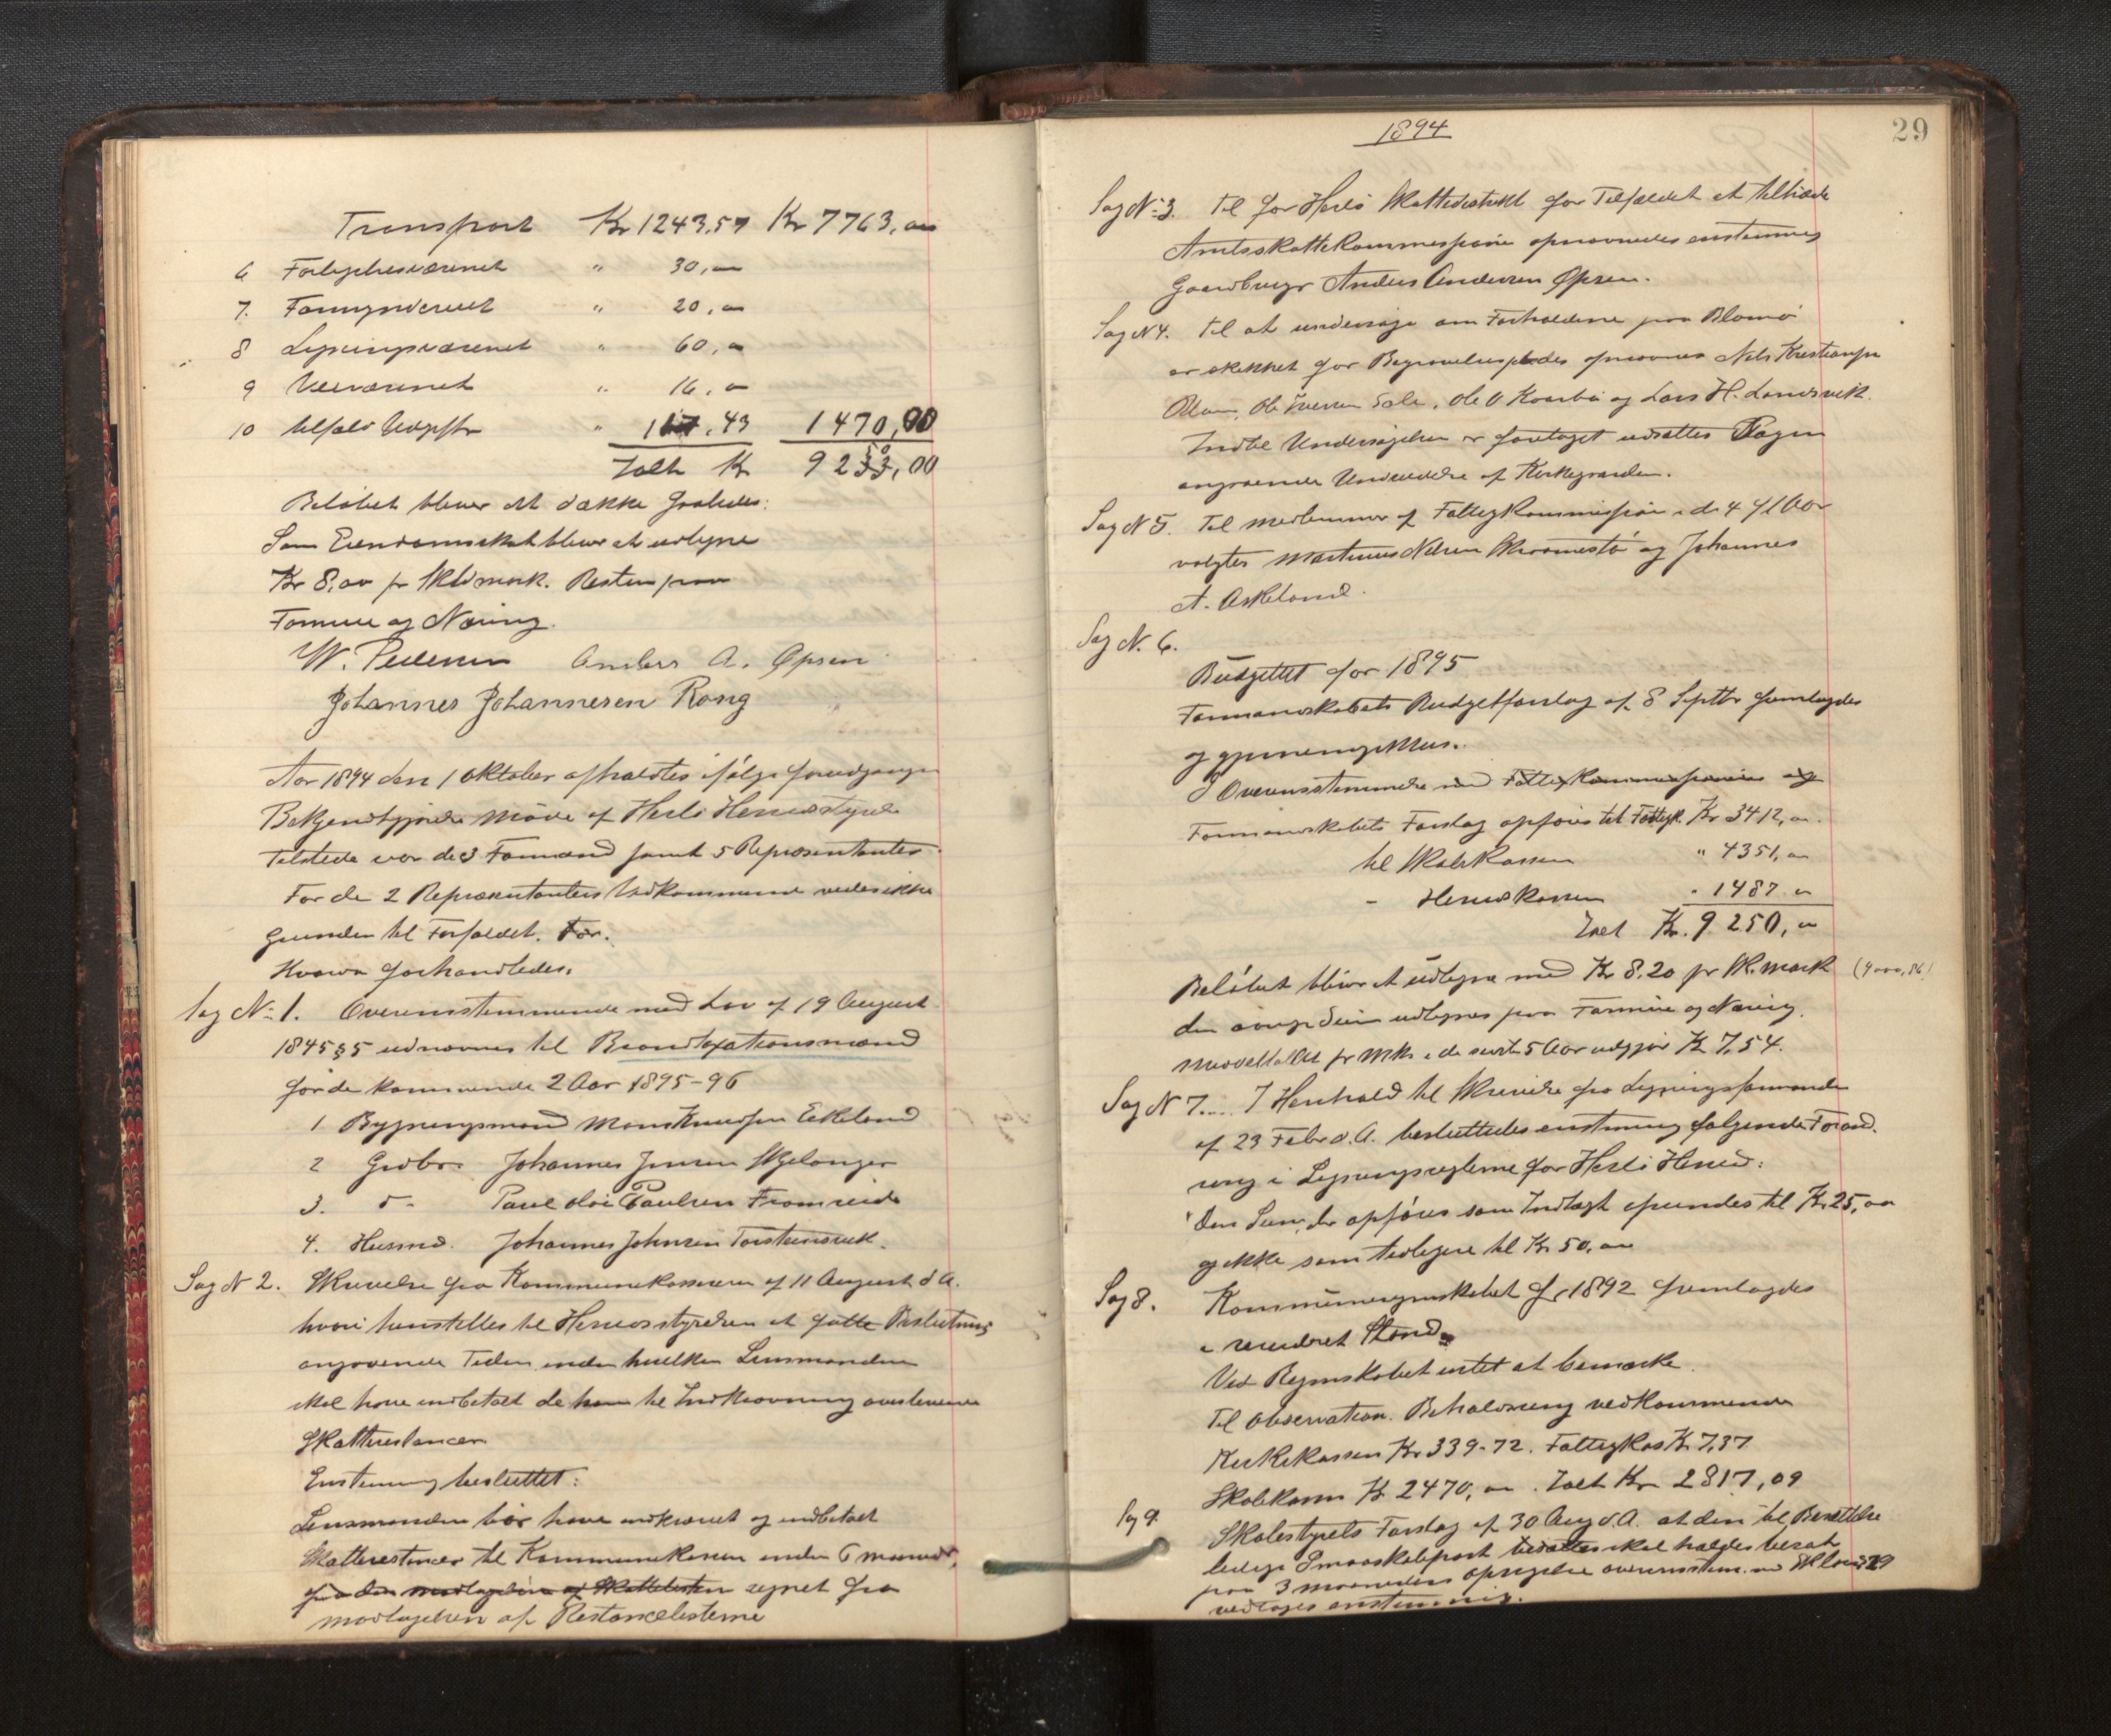 Transport Kr 1243,57 Kr 7763,00
6 Forligelsesvæsenet " 30,00
7. Formynderiet " 20,00
8 Lysningsvæsenet " 60,00
9 Veivæsenet " 16,00
10 tilfæld Udgifter " ,43 1470,00
Ialt Kr 9233,00
Beløbet bliver at dække saaledes:
Som Eiendomsskat bliver at udligne
Kr 8,00 pr Skldmark. Resten paa
Formue og Næring.
W. Pedersen Anders A. Opsen
Johannes Johannesen Rong
Aar 1894 den 1 Oktober afholdtes ifølge forudgangen
Bekjendtgjørelse Møde af Herlø Herredsstyrelse
Tilstede var de 3 Formænd samt 5 Repræsentanter
For de 2 Repræsentanters Vedkommende vides ikke
Grunden til Forfaldet. For.
Hvorva forhandledes.
Sag N: 1. Overensstemmende med Lov af 19 August
1845 § 5 udnævnes til Brandtaxationsmænd
for de kommende 2 Aar 1895-96
1 Bygningsmand Mons Knudsen Eikeland
2 Grdbr. Johannes Jensen Skjelanger
3. d- Paul Olai Paulsen Fromreide
4. Husmd. Johannes Johnsen Torsteinsvik.
Sag N 2. Skrivelse fra Kommunekassereren af 11 August d A.
hvori henstilles til Herredsstyrelsen at fatte Beslutning
angaaende Tiden inden hvilken Lensmanden
skal have indbetalt de ham til Indkrævning overleverede
Skatterestancer
Enstemmig besluttet:
Lensmanden bør have indkrævet og indbetalt
Skatterestancer til Kommunekassen inden 6 maaneder,
fra den modtagelsen af Skattelisten regnet fra
modtagelsen af Restancelisterne
1894
29
Sag N: 3. Til for Herlø Skattedistrikt for Tilfældet at tiltræde
Amtsskattekommissionen opnævnedes enstemmig
Gaardbruger Anders Andersen Opsen.
Sag N 4. Til at undersøge om Forholdene paa Blomø
er skikket for Begravelsesplads opnævnes Nils Kristiansen
Ole Iversen Sele, Ole O Kvarbø og Lars H. Landsvik.
Indtil Undersøgelsen er foretaget udsættes Sagen
angaaende Undvidelse af Kirkegaarden.
Sag N 5. Til medlemmer af Fattigkommission i de 4 Aar
valgtes Martinus Nilsen Skraamestø og Johannes
A. Askeland.
Sag N. 6.
Budgettet for 1895
Formandskabets Budgetforslag af 8 Septbr fremlagdes
og gjennemgikkes.
I Overensstemmelse med Fattigkommissionens og
Formandskabets Forslag opføres til Fattigk. Kr 3412,00.
til Skolekassen " 4351,00
- Herredskassen " 1487 00
Ialt Kr. 9250,00
Beløbet bliver at udligne med Kr 8,20 pr Sk.mark (4000,86)
den øvrige Del udlignes paa Formue og Næring.
Middeltallet pr Mk. i de sidste 5 Aar udgjør Kr 7,54.
Sag N 7. I Henhold til Skrivelse fra Lysningsformanden
af 23 Febr d. A. besluttedes enstemmig følgende Forand.
ring i Lysningsreglerne for Herlø Herred:
"Den Sum, der opføres som Indtægt afrundes til Kr 25,00
og ikke som tidligere til Kr 50,00
Sag 8. Kommuneregnskabet for 1892 fremlagdes
i revideret Stand.
Ved Regnskabet intet at bemærke.
Til Observation. Beholdning vedkommende
Kirkekassen Kr 339-72. Fattigkas Kr 7,37
Skolekassen Kr 2470,00. Ialt Kr 2817,09
Sag 9. Skolestyrets Forslag af 30 Aug d. A. at den til Besættelse
ledige Smaaskolepost besættes skal holdes besat
paa 3 maaneders opsigelse overensstem. med Skl
vedtages enstemmig.